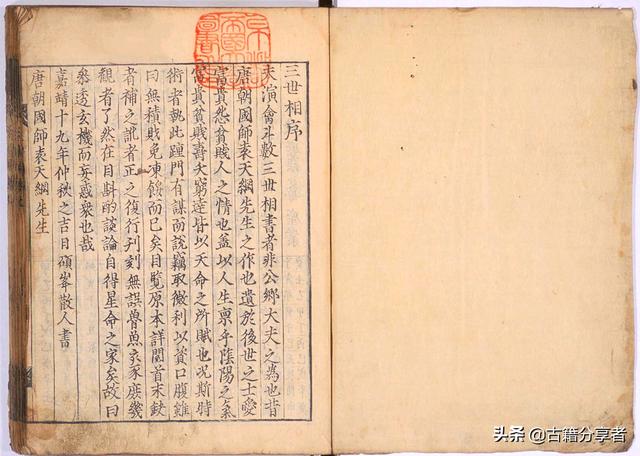 三世相序
夫演會斗數三世相書者非公卿大夫之為也昔
唐朝國師袁天綱先生之作也遺於後世之士愛
富貴愁貧賤人之情也蓋以人生禀乎陰陽之氣
富貴貧賤壽夭窮達皆以天命之所賦也况斯時
術者執此踵門有謀而説竊取微利以資口腹雖
曰無積貶免凍餒而已矣目覽原本詳閲首末缺
者補之訛者正之復行刊刻無誤魯魚亥豕庶幾
觀者了然在目斟酌談論自得星命之家矣故曰
叅透玄機而妄惑衆也哉
嘉靖十九年仲秋之吉日碩峯散人書
唐朝國師袁天綱先生
头条 @古籍分享者